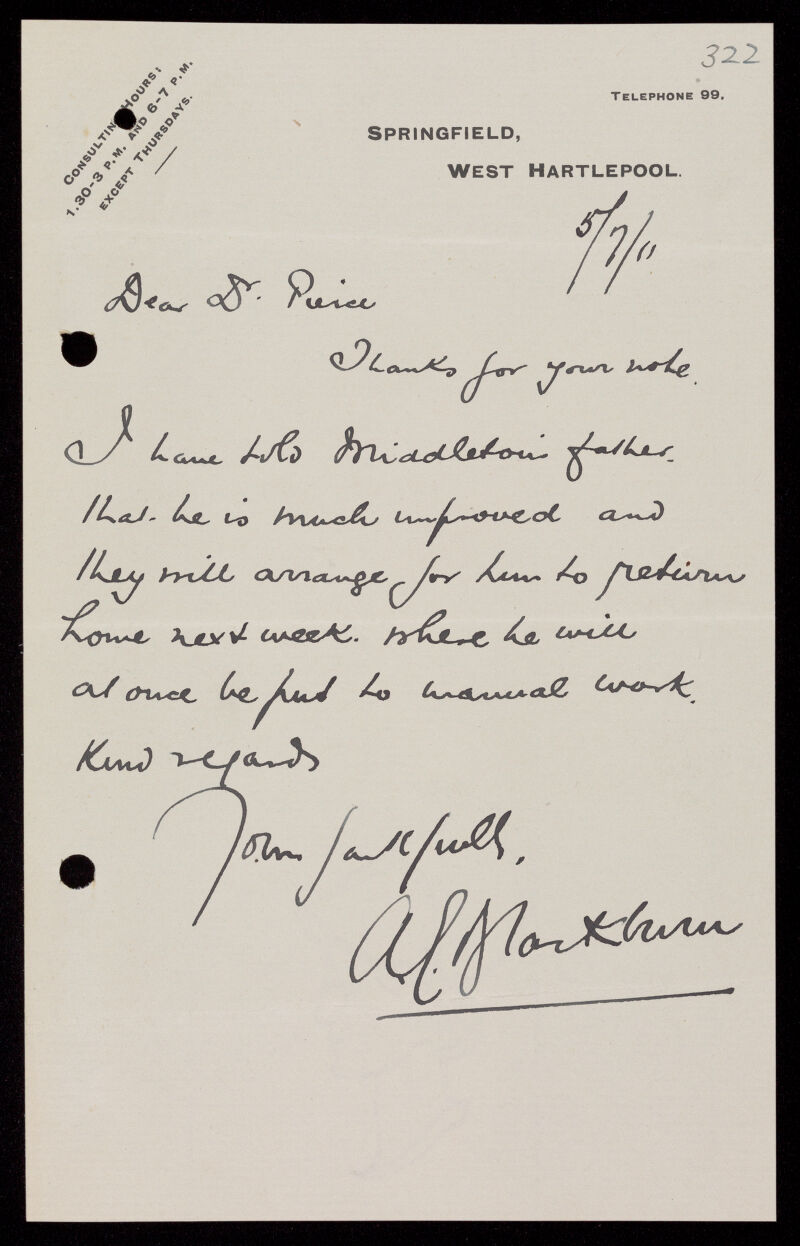 322
CONSULTING HOURS:
1.30-3 P.M. AND 6-7 P.M.
EXCEPT THURSDAYS.
TELEPHONE 99.
SPRINGFIELD,
WEST HARTLEPOOL.
5/7/11
Dear Dr. Pierce
Thanks for your note.
I have told Middleton's father.
that he is much improved and
they will arrange for him to return
home next week. where he will
at once be put to manual work.
Kind regards
Yours faithfully,
A.E. Blackburn